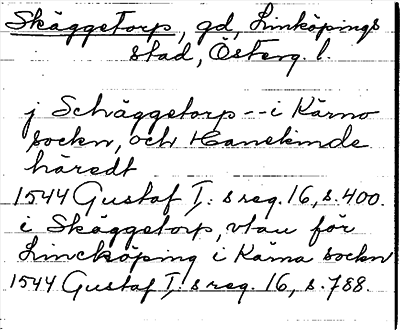 Skäggetorp, gd, Linköpings
stad, Österg. l.
j Schäggetorp -- i Kärno
sockn, och Hanekinde
häredt
1544 Gustaf I: s reg. 16, s. 400.
i Skäggetorp, utan för
Lincköping i Kärna sockn
1544 Gustaf I: s reg. 16, s. 788.